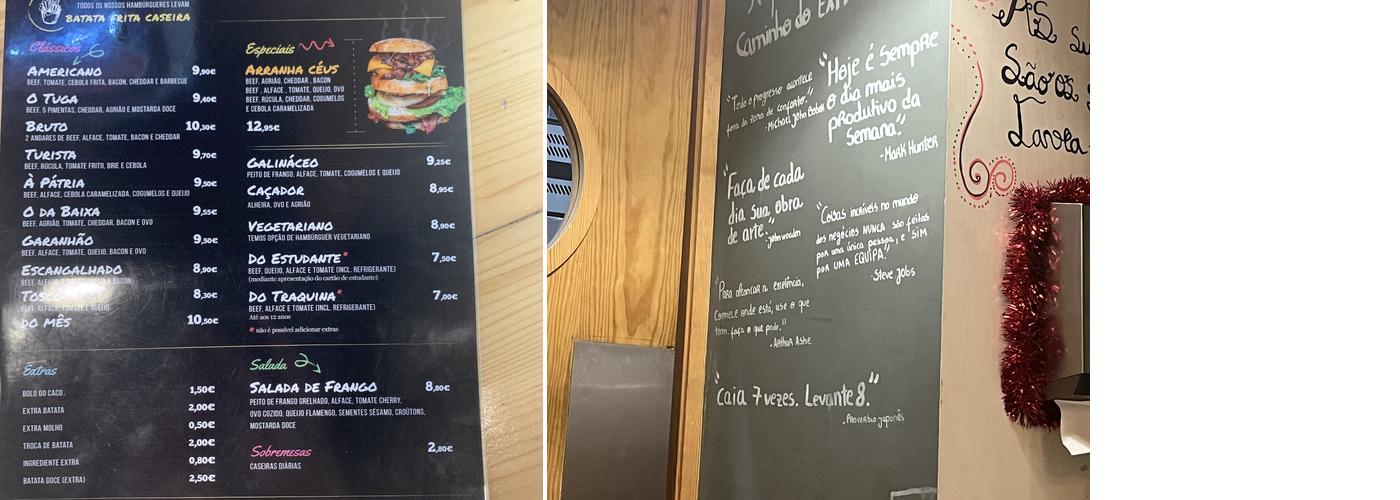 TODOS OS NOSSOS HAMBÚRGUERES LEVAM
BATATA FRITA CASEIRA
Clássicos
AMERICANO 9,90€
BEEF, TOMATE, CEBOLA FRITA, BACON, CHEDDAR E BARBECUE
O TUGA 9,40€
BEEF, 5 PIMENTAS, CHEDDAR, AGRIÃO E MOSTARDA DOCE
BRUTO 10,30€
2 ANDARES DE BEEF, ALFACE, TOMATE, BACON E CHEDDAR
TURISTA 9,70€
BEEF, RÚCULA, TOMATE FRITO, BRIE E CEBOLA
À PÁTRIA 9,50€
BEEF, ALFACE, CEBOLA CARAMELIZADA, COGUMELOS E QUEIJO
O DA BAIXA 9,55€
BEEF, AGRIÃO, TOMATE, CHEDDAR, BACON E OVO
GARANHÃO 9,50€
BEEF, ALFACE, TOMATE, QUEIJO, BACON E OVO
ESCANGALHADO 8,90€
BEEF, ALFACE, BACON
TOSCO 8,30€
BEEF, ALFACE, QUEIJO
DO MÊS 10,50€
Especiais
ARRANHA CÉUS
BEEF, AGRIÃO, CHEDDAR, BACON
BEEF, ALFACE, TOMATE, QUEIJO, OVO
BEEF, RÚCULA, CHEDDAR, COGUMELOS
E CEBOLA CARAMELIZADA
12,95€
GALINÁCEO 9,25€
PEITO DE FRANGO, ALFACE, TOMATE, COGUMELOS E QUEIJO
CAÇADOR 8,95€
ALHEIRA, OVO E AGRIÃO
VEGETARIANO 8,90€
TEMOS OPÇÃO DE HAMBÚRGUER VEGETARIANO
DO ESTUDANTE* 7,50€
BEEF, QUEIJO, ALFACE E TOMATE (INCL. REFRIGERANTE)
(mediante apresentação do cartão de estudante)
DO TRAQUINA* 7,00€
BEEF, ALFACE E TOMATE (INCL. REFRIGERANTE)
Até aos 12 anos
* não é possível adicionar extras
Extras
BOLO DO CACO. 1,50€
EXTRA BATATA 2,00€
EXTRA MOLHO 0,50€
TROCA DE BATATA 2,00€
INGREDIENTE EXTRA 0,80€
BATATA DOCE (EXTRA) 2,50€
Salada
SALADA DE FRANGO 8,80€
PEITO DE FRANGO GRELHADO, ALFACE, TOMATE CHERRY,
OVO COZIDO, QUEIJO FLAMENGO, SEMENTES SÉSAMO, CROÛTONS,
MOSTARDA DOCE
Sobremesas 2,80€
CASEIRAS DIÁRIAS
Caminho do
"Todo o progresso acontece
fora da zona de conforto."
-Michael John Bobak
"Hoje é Sempre
o dia mais
produtivo da
Semana."
-Mark Hunter
"Faça de cada
dia sua obra
de arte."
-John wooden
"Coisas incríveis no mundo
dos negócios NUNCA são feitas
por uma única pessoa, e SIM
por UMA EQUIPA."
-Steve Jobs
"Para alcançar a excelência,
Comece onde está, use o que
tem, faça o que pode."
-Arthur Ashe
"Caia 7 vezes. Levante 8."
-Provérbio japonês
AS
São os